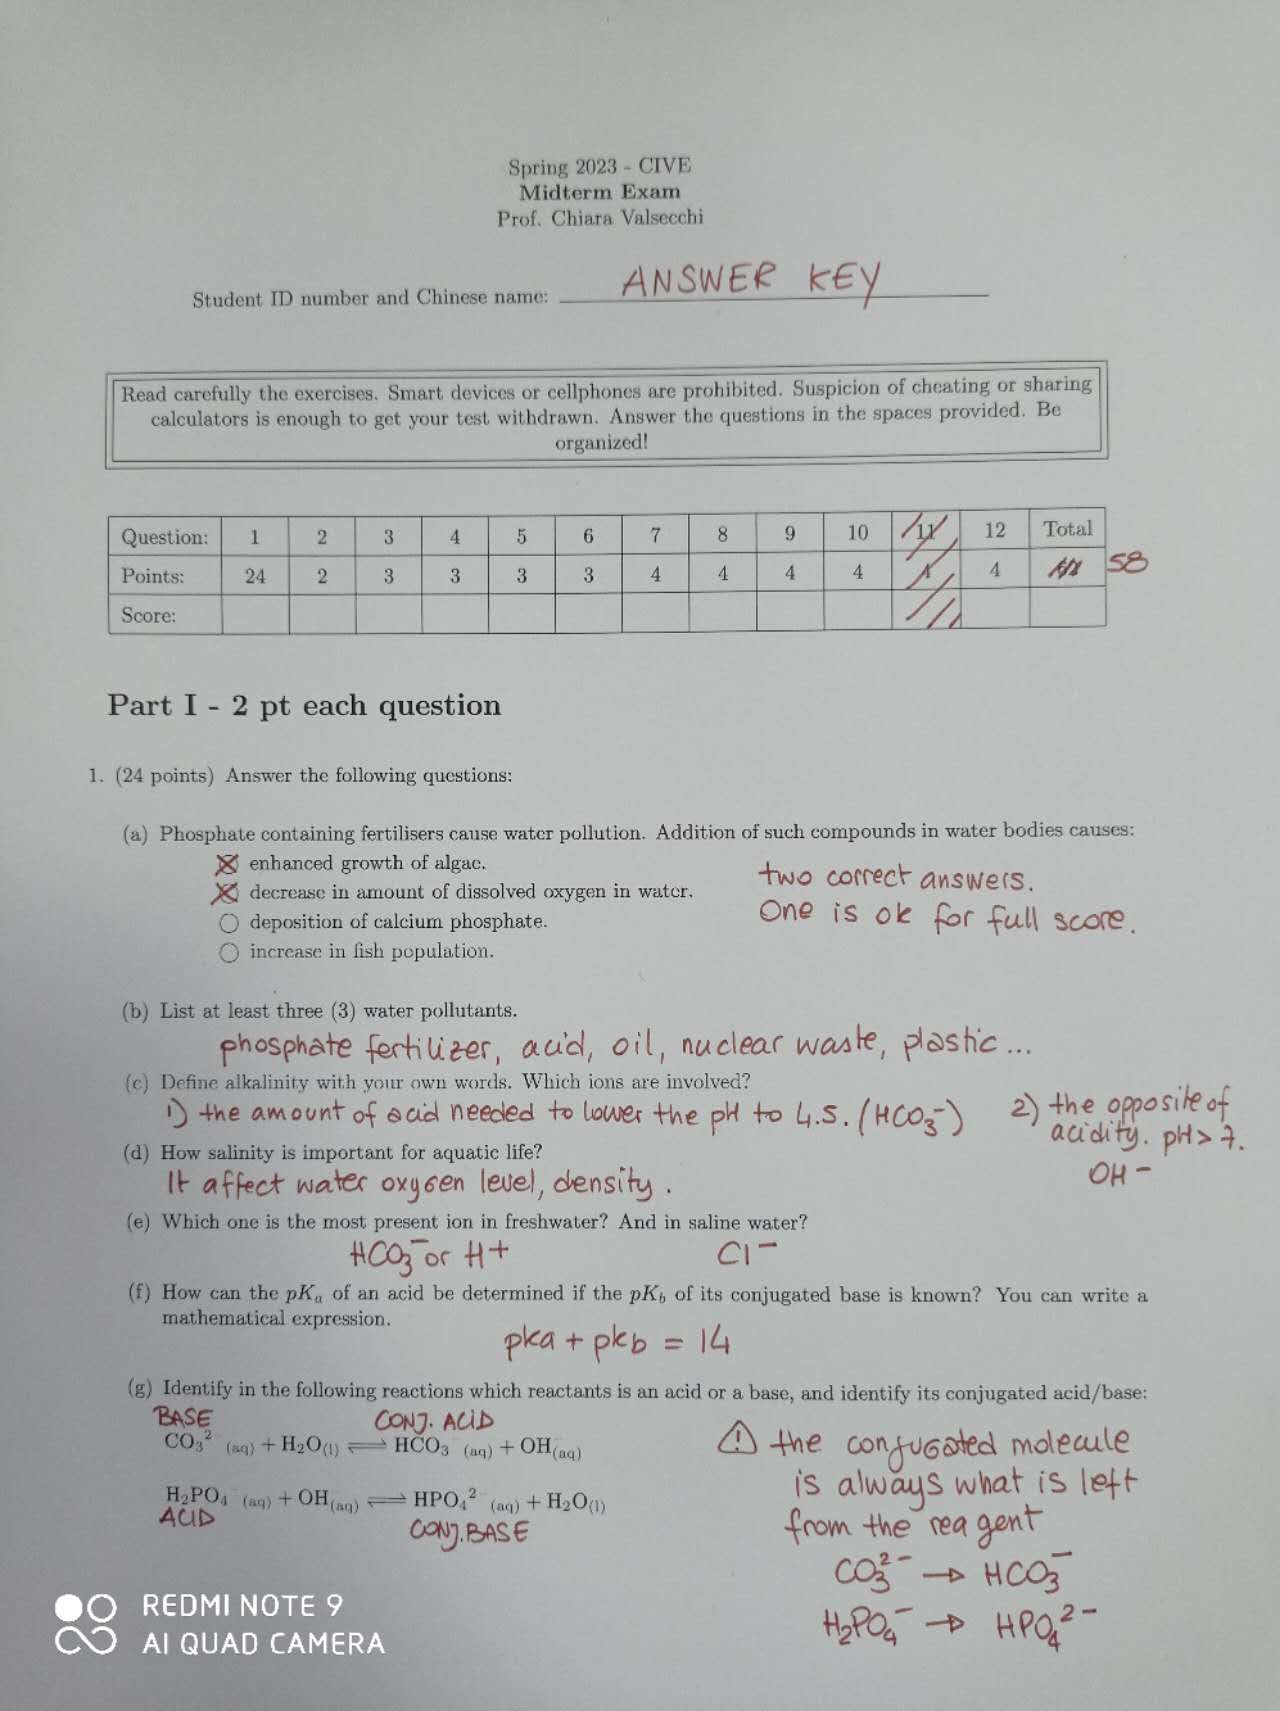 Spring 2023 - CIVE
Midterm Exam
Prof. Chiara Valsecchi
Student ID number and Chinese name: ANSWER KEY
Read carefully the exercises. Smart devices or cellphones are prohibited. Suspicion of cheating or sharing
calculators is enough to get your test withdrawn. Answer the questions in the spaces provided. Be
organized!
Question: 1 2 3 4 5 6 7 8 9 10 11 12 Total
Points: 24 2 3 3 3 3 4 4 4 4 4 58
Score:
Part I - 2 pt each question
1. (24 points) Answer the following questions:
(a) Phosphate containing fertilisers cause water pollution. Addition of such compounds in water bodies causes:
enhanced growth of algae.
decrease in amount of dissolved oxygen in water.
deposition of calcium phosphate.
increase in fish population.
two correct answers.
One is ok for full score.
(b) List at least three (3) water pollutants.
phosphate fertilizer, acid, oil, nuclear waste, plastic...
(c) Define alkalinity with your own words. Which ions are involved?
1) the amount of acid needed to lower the pH to 4.5. (HCO₃⁻)
2) the opposite of
acidity. pH > 7.
OH⁻
(d) How salinity is important for aquatic life?
It affect water oxygen level, density.
(e) Which one is the most present ion in freshwater? And in saline water?
HCO₃⁻ or H+ Cl⁻
(f) How can the pKₐ of an acid be determined if the pK_b of its conjugated base is known? You can write a
mathematical expression.
pka + pkb = 14
(g) Identify in the following reactions which reactants is an acid or a base, and identify its conjugated acid/base:
BASE CONJ. ACID
CO₃² (aq) + H₂O(l) ⇌ HCO₃ (aq) + OH(aq)
H₂PO₄ (aq) + OH(aq) ⇌ HPO₄² (aq) + H₂O(l)
ACID CONJ. BASE
! the conjugated molecule
is always what is left
from the reagent
CO₃²⁻ → HCO₃⁻
H₂PO₄⁻ → HPO₄²⁻
REDMI NOTE 9
AI QUAD CAMERA